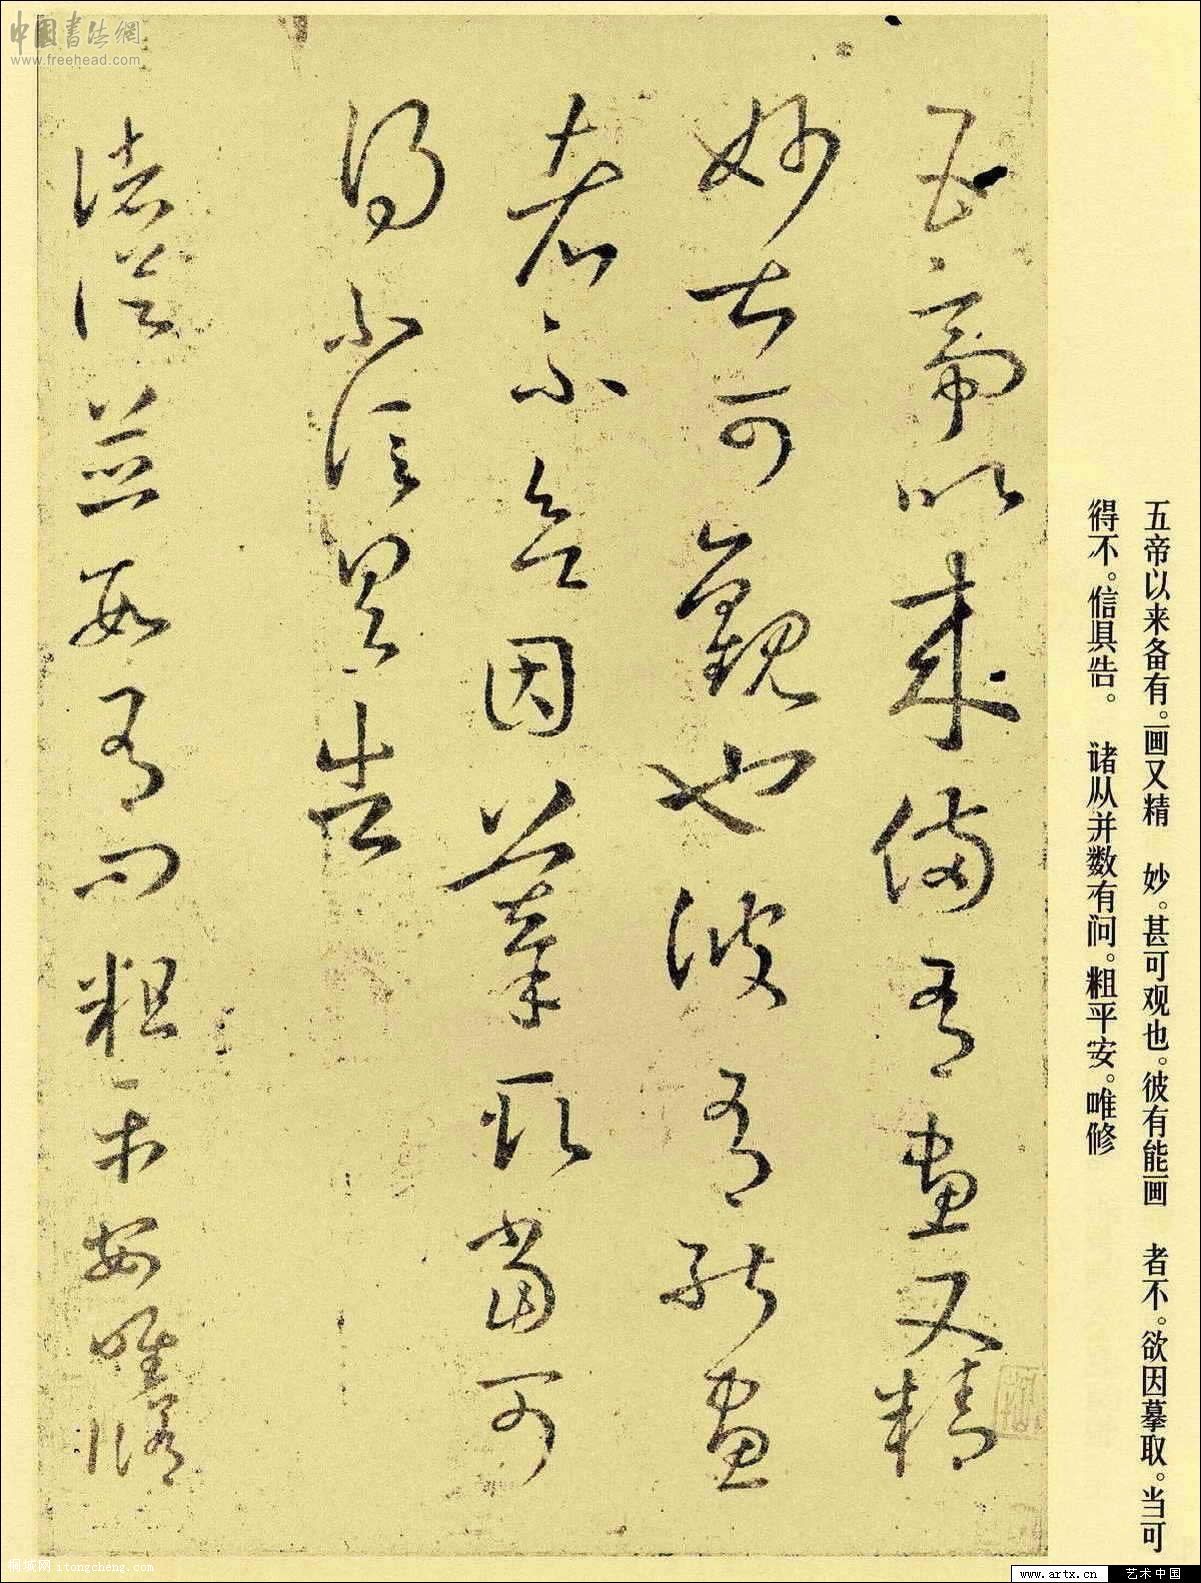 中国书法網
www.freehead.com
五帝以来備有画又精
妙甚可觀也彼有能画
者不欲因摹取當可
得不信具告
諸從並數有問粗平安唯脩
五帝以来备有。画又精 妙。甚可观也。彼有能画 者不。欲因摹取。当可
得不。信具告。 诸从并数有问。粗平安。唯修
桐城网 itongcheng.com
www.artx.cn 艺术中国